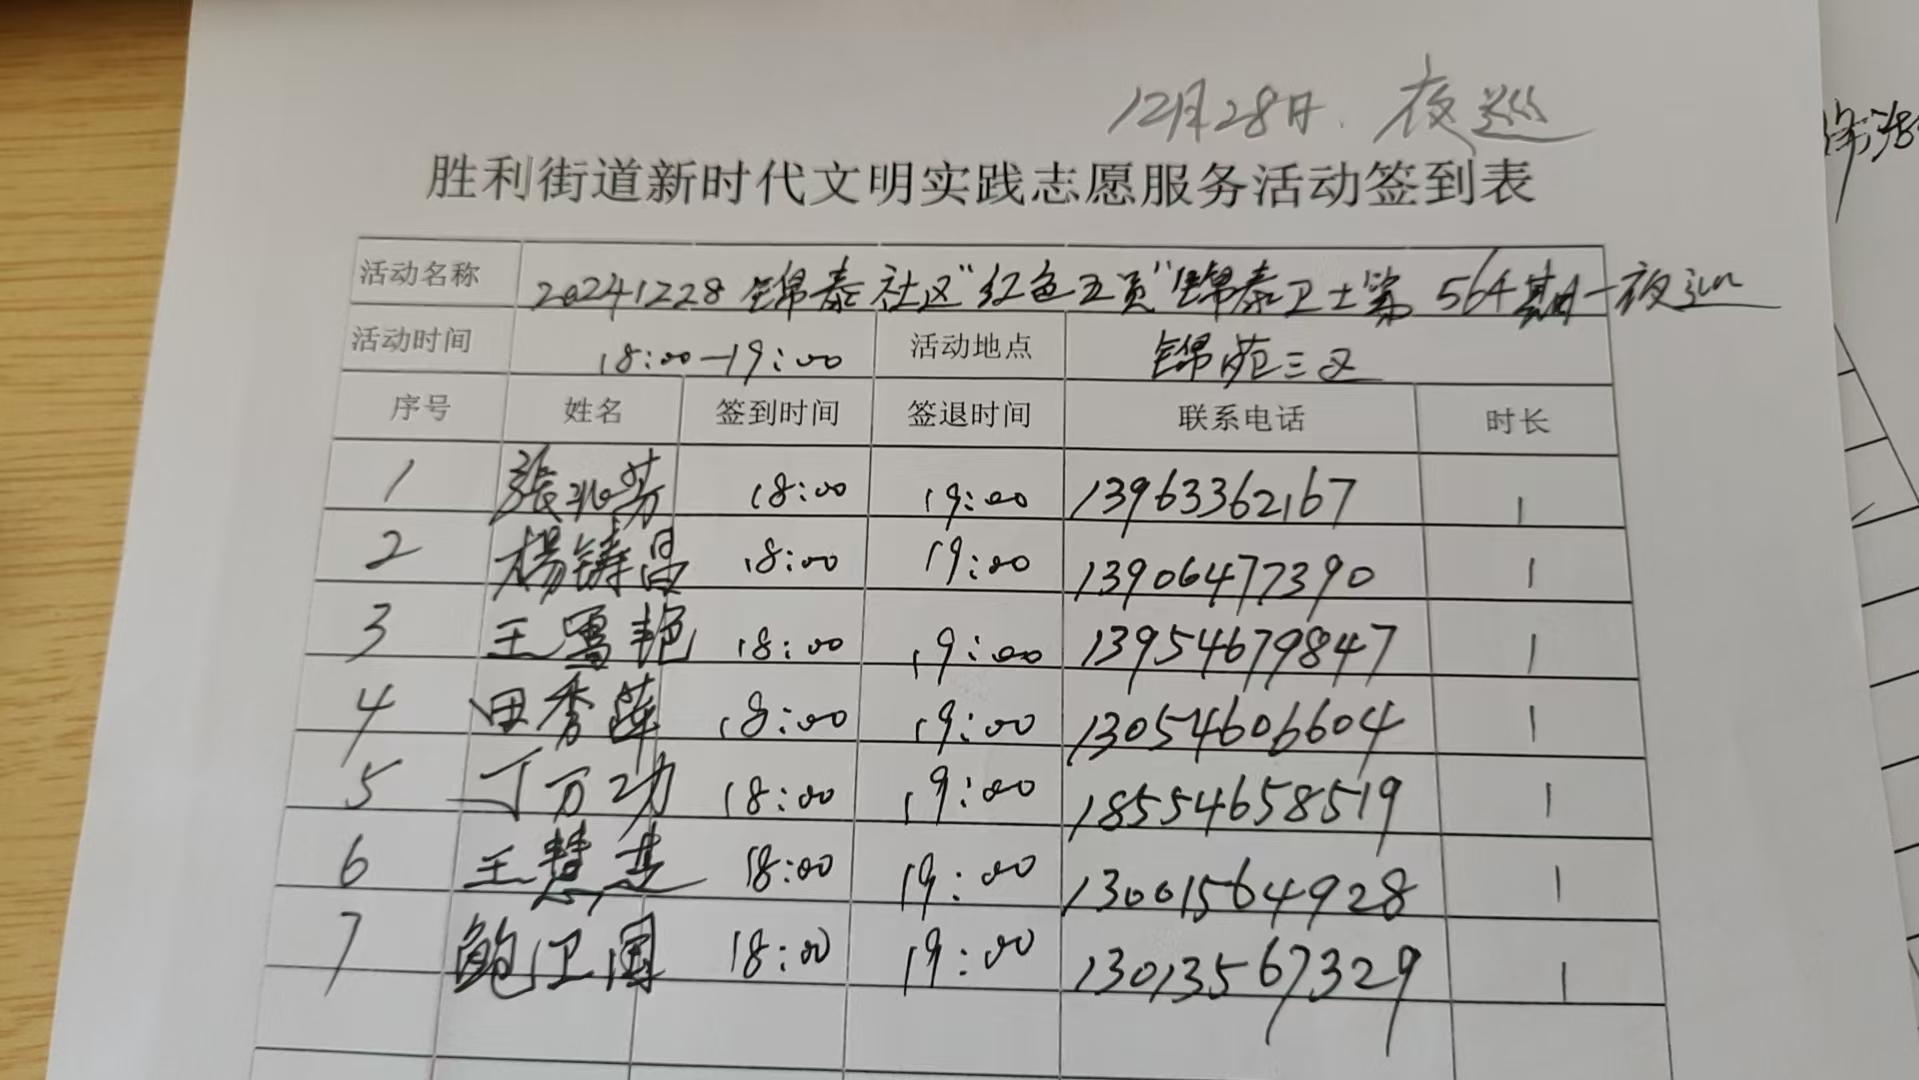 12月28日. 夜巡
胜利街道新时代文明实践志愿服务活动签到表
活动名称 20241228 锦泰社区"红色五员"锦泰卫士第 564期—夜巡
活动时间 18:00—19:00 活动地点 锦苑三区
序号 姓名 签到时间 签退时间 联系电话 时长
1 張兆芳 18:00 19:00 13963362167 1
2 楊鑄昌 18:00 19:00 13906477390 1
3 王雪艳 18:00 19:00 13954679847 1
4 田秀萍 18:00 19:00 13054606604 1
5 丁万功 18:00 19:00 18554658519 1
6 王慧 18:00 19:00 13001564928 1
7 鲍卫国 18:00 19:00 13013567329 1